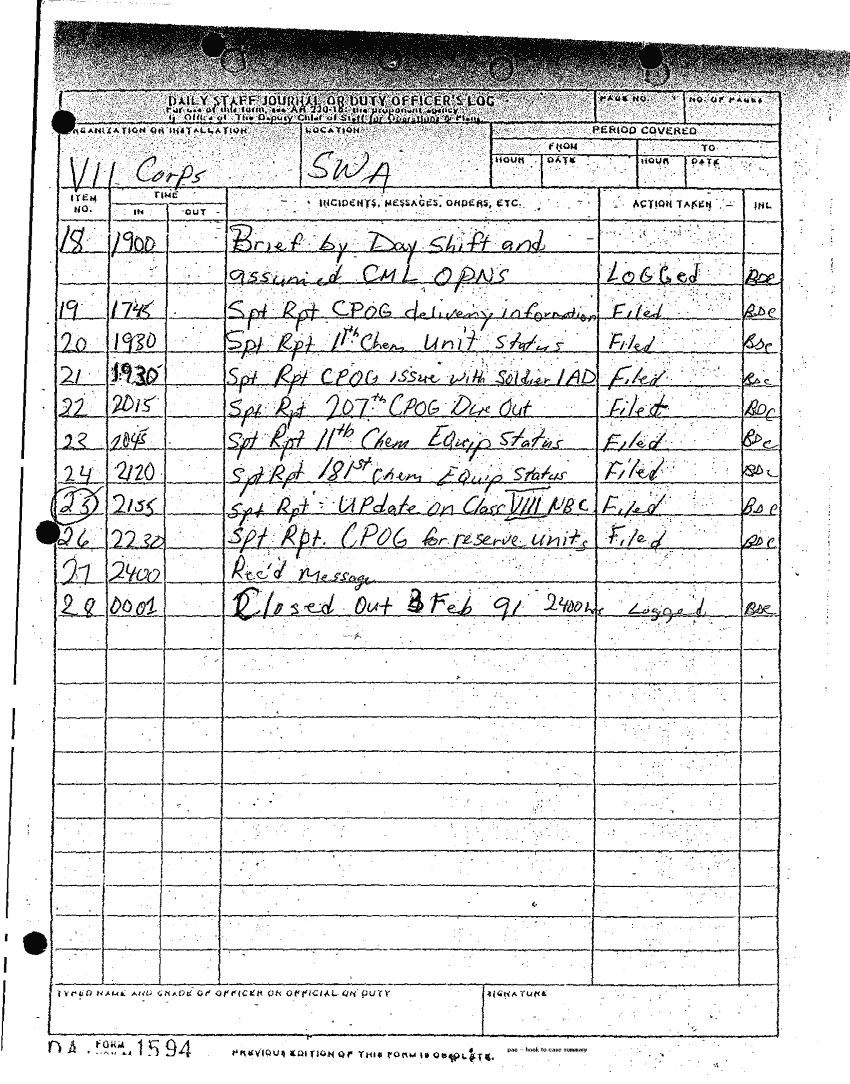 DAILY STAFF JOURNAL OR DUTY OFFICER'S LOG
PAGE NO.
NO. OF PAGES
For use of this form, see AR 220-15; the proponent agency
is Office of The Deputy Chief of Staff for Operations & Plans.
ORGANIZATION OR INSTALLATION
LOCATION
PERIOD COVERED
VII Corps
SWA
FROM
TO
HOUR
DATE
HOUR
DATE
ITEM NO.
TIME
IN
OUT
INCIDENTS, MESSAGES, ORDERS, ETC.
ACTION TAKEN
INL
18 1900 Brief by Day Shift and
assumed CML OPNS LOGGed BDC
19 1745 Spt Rpt CPOG delivery information Filed BDC
20 1930 Spt Rpt 11th Chem Unit Status Filed BDC
21 1930 Spt Rpt CPOG issue with Soldier 1AD Filed BDC
22 2015 Spt Rpt 207th CPOG Due Out Filed BDC
23 2045 Spt Rpt 11th Chem Equip Status Filed BDC
24 2120 Spt Rpt 181st Chem Equip Status Filed BDC
25 2155 Spt Rpt: UPdate on Class VIII NBC Filed BDC
26 2230 Spt Rpt. CPOG for reserve units Filed BDC
27 2400 Rec'd Message
28 0001 Closed Out 3 Feb 91 2400hrs Logged BDC
TYPED NAME AND GRADE OF OFFICER OR OFFICIAL ON DUTY
SIGNATURE
DA FORM 1594
PREVIOUS EDITION OF THIS FORM IS OBSOLETE.
pac - hook to case summary